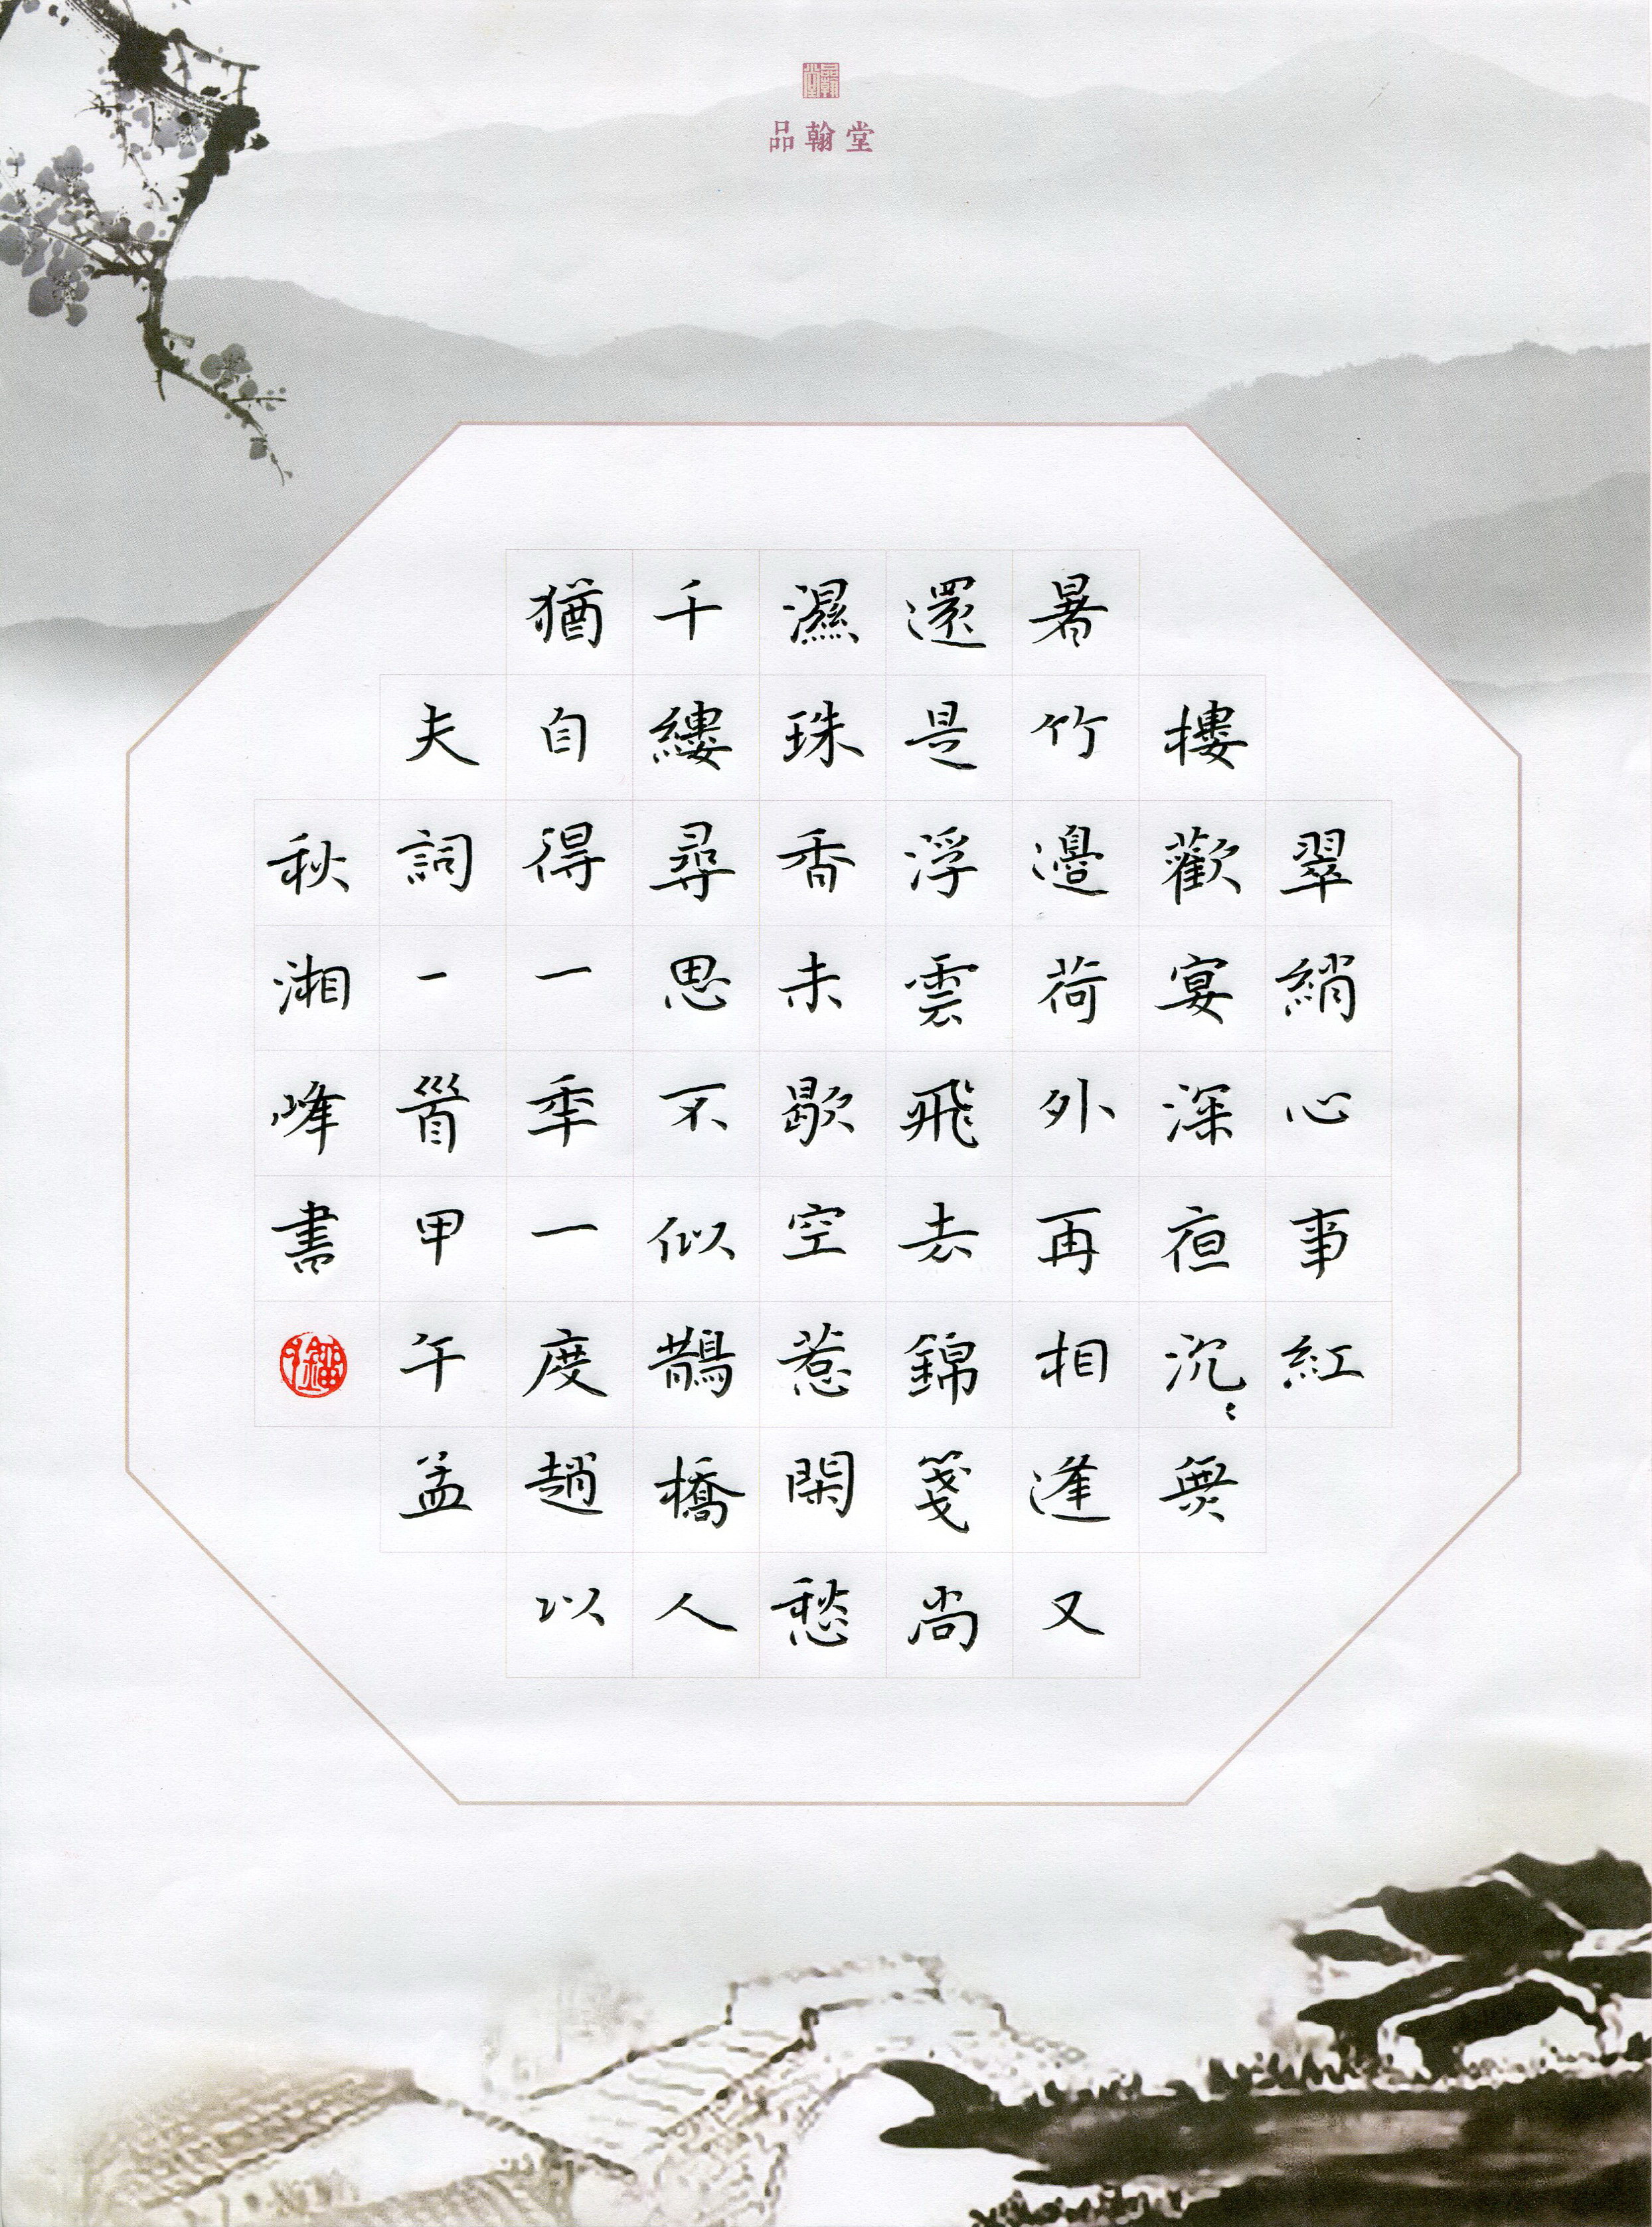 品翰堂
品翰堂
翠綃心事紅
樓歡宴深夜沉〻無
暑竹邊荷外再相逢又
還是浮雲飛去錦箋尚
濕珠香未歇空惹閑愁
千縷尋思不似鵲橋人
猶自得一年一度趙以
夫詞一首甲午孟
秋湘峰書